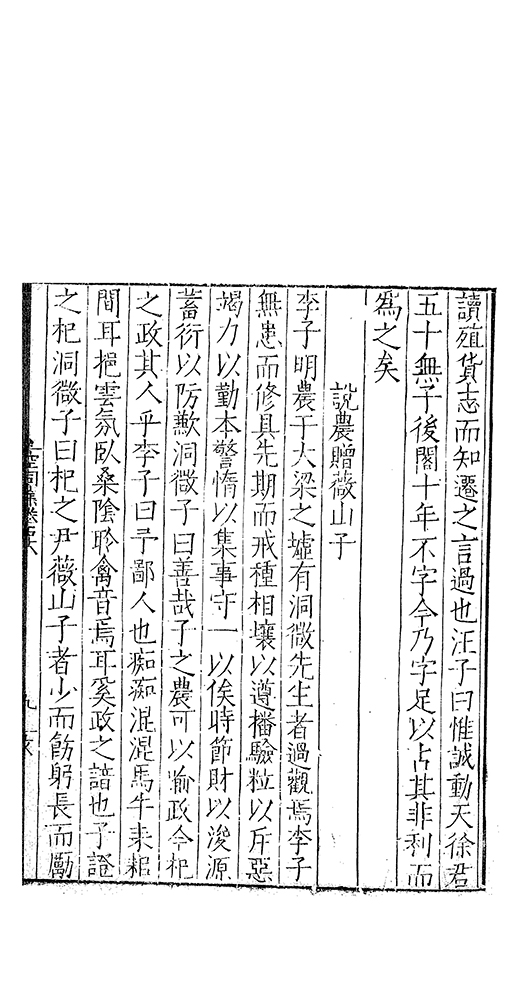 讀殖貨志而知遷之言過也汪子曰惟誠動天徐君
五十無子後閣十年不字今乃字足以占其非利而
為之矣
說農贈薇山子
李子明農于大梁之墟有洞微先生者過觀焉李子
無患而修具先期而戒種相壤以遵播驗粒以斥惡
竭力以勤本警惰以集事守一以俟時節財以浚源
蓄衍以防歉洞微子曰善哉子之農可以喻政今杞
之政其人乎李子曰予鄙人也痴痴混混馬牛耒耜
間耳挹雲氛臥桑陰聆禽音焉耳奚政之諳也予證
之杞洞微子曰杞之尹薇山子者少而飭躬長而勵